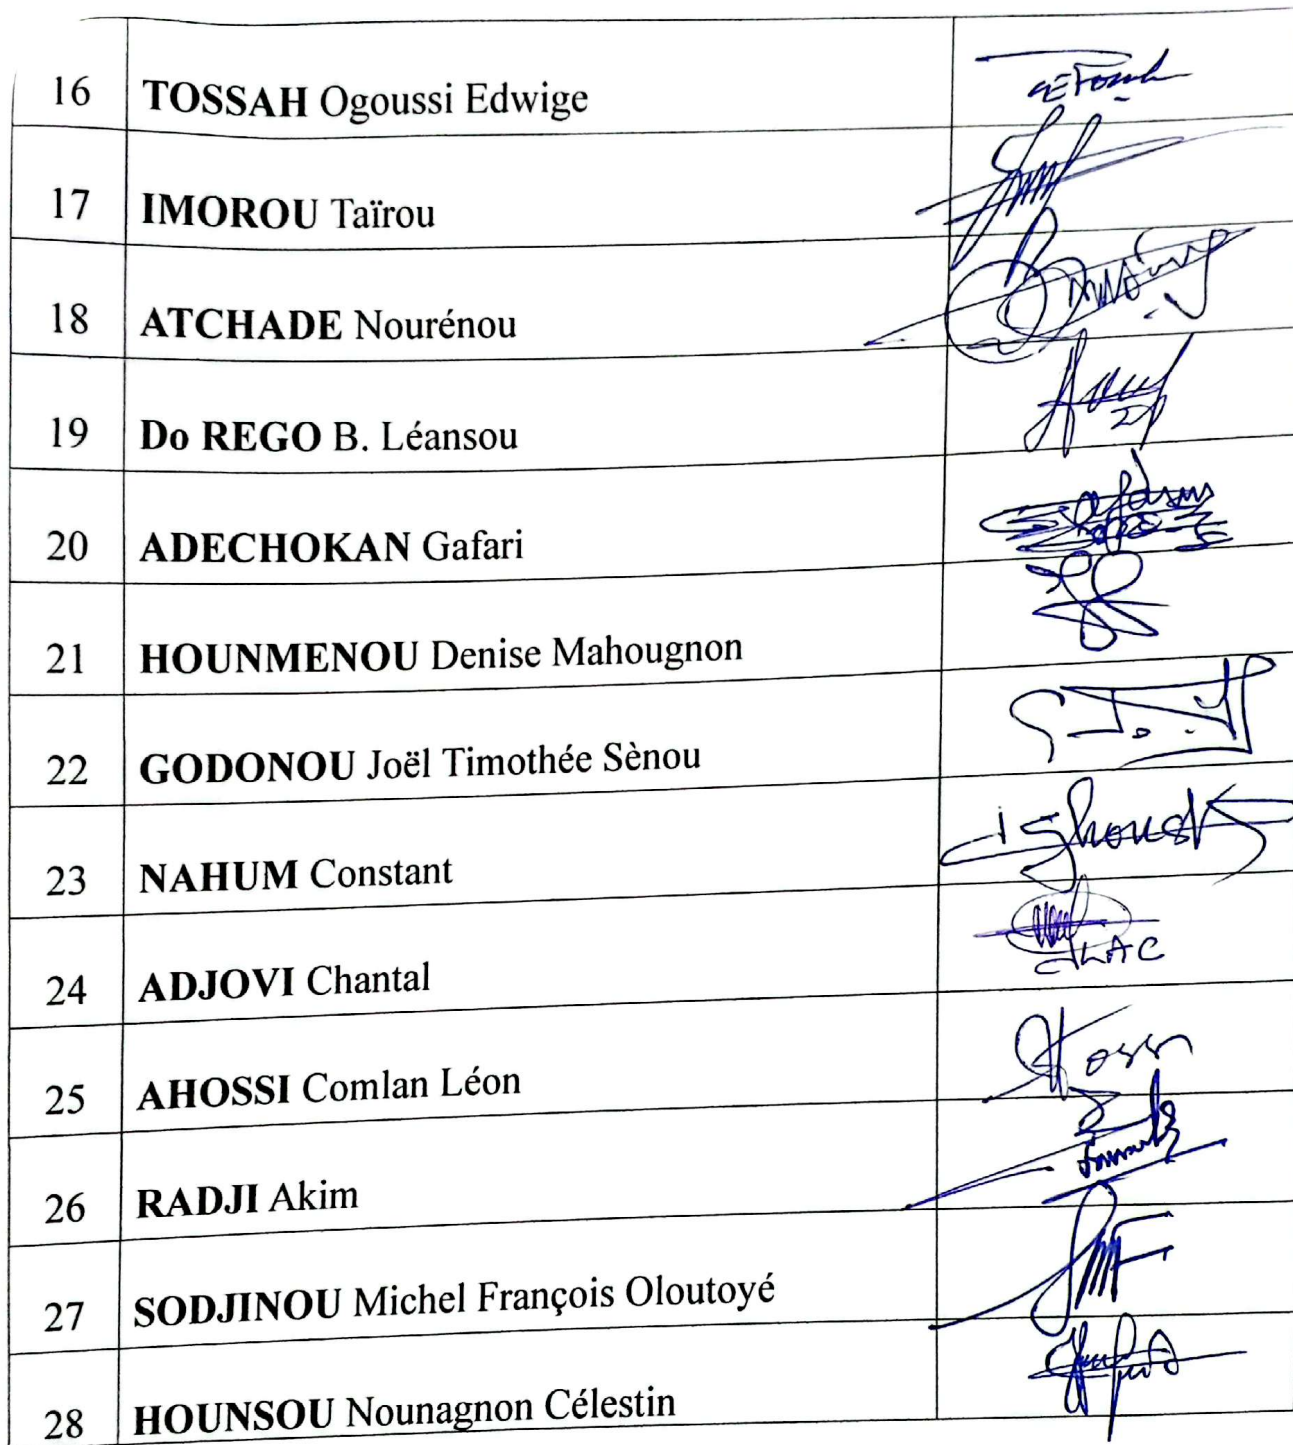 16 TOSSAH Ogoussi Edwige
17 IMOROU Taïrou
18 ATCHADE Nourénou
19 Do REGO B. Léansou
20 ADECHOKAN Gafari
21 HOUNMENOU Denise Mahougnon
22 GODONOU Joël Timothée Sènou
23 NAHUM Constant
24 ADJOVI Chantal
25 AHOSSI Comlan Léon
26 RADJI Akim
27 SODJINOU Michel François Oloutoyé
28 HOUNSOU Nounagnon Célestin